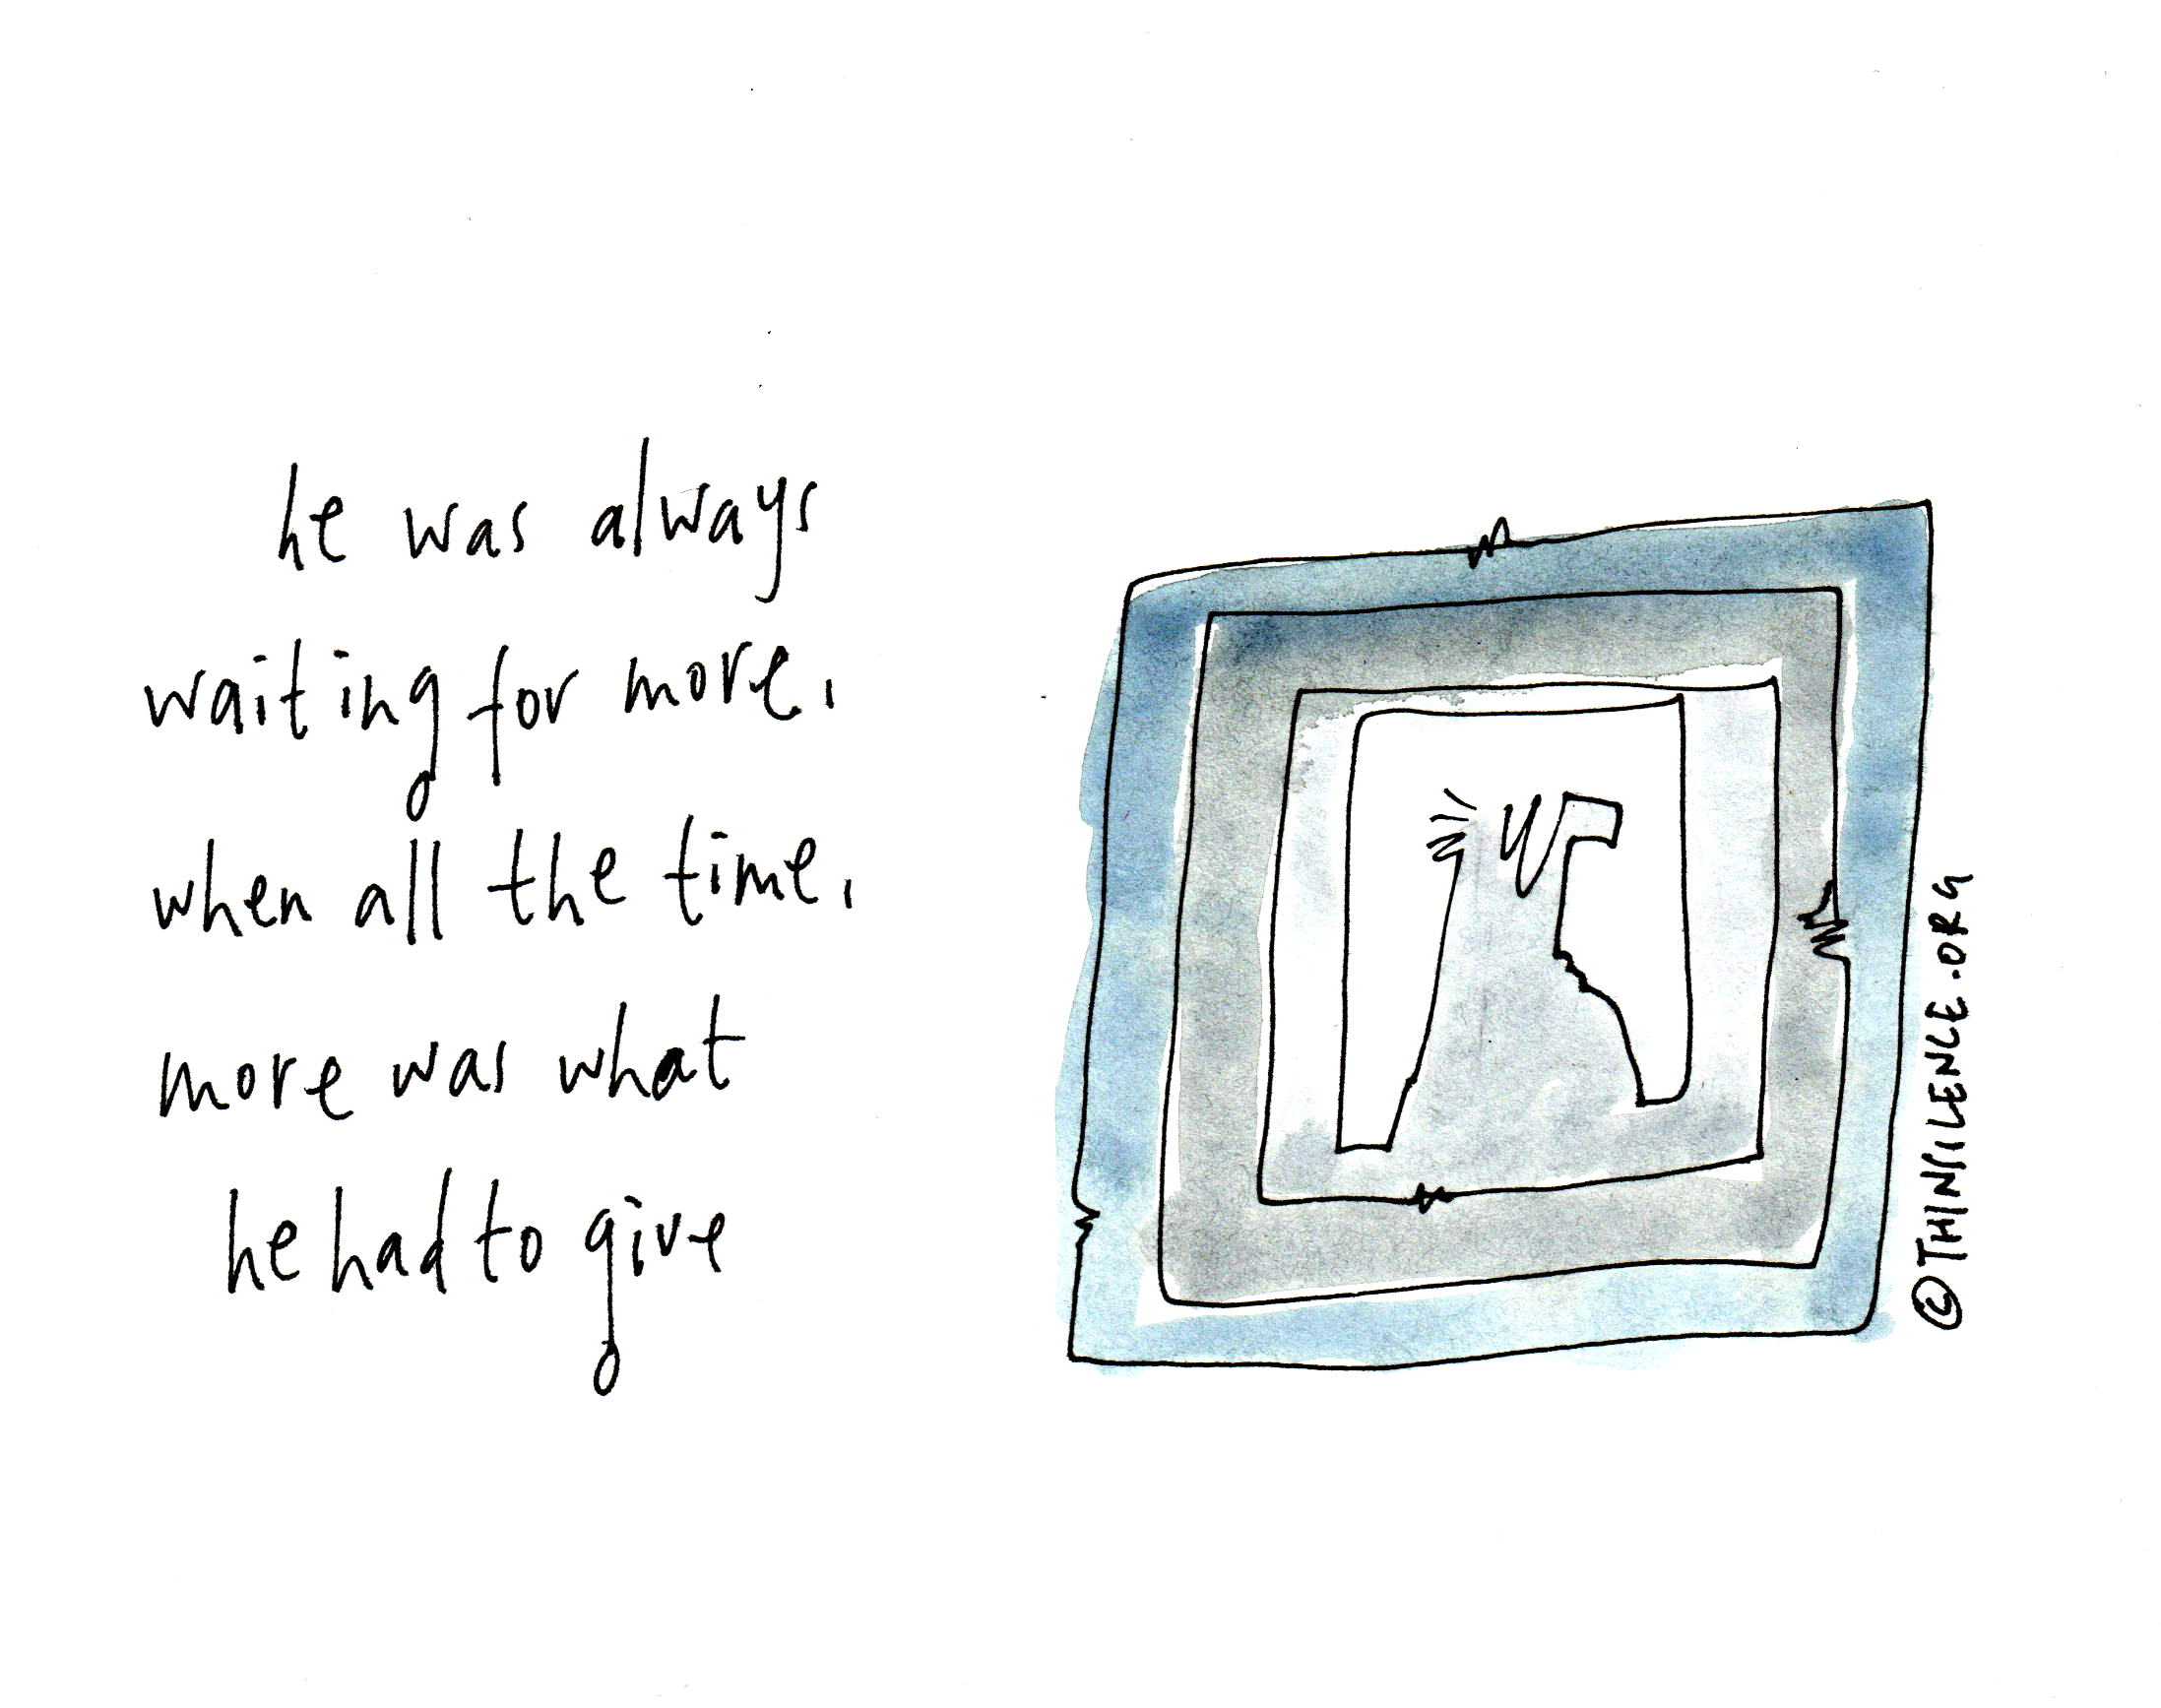 he was always
waiting for more,
when all the time,
more was what
he had to give
©THINSILENCE.ORG